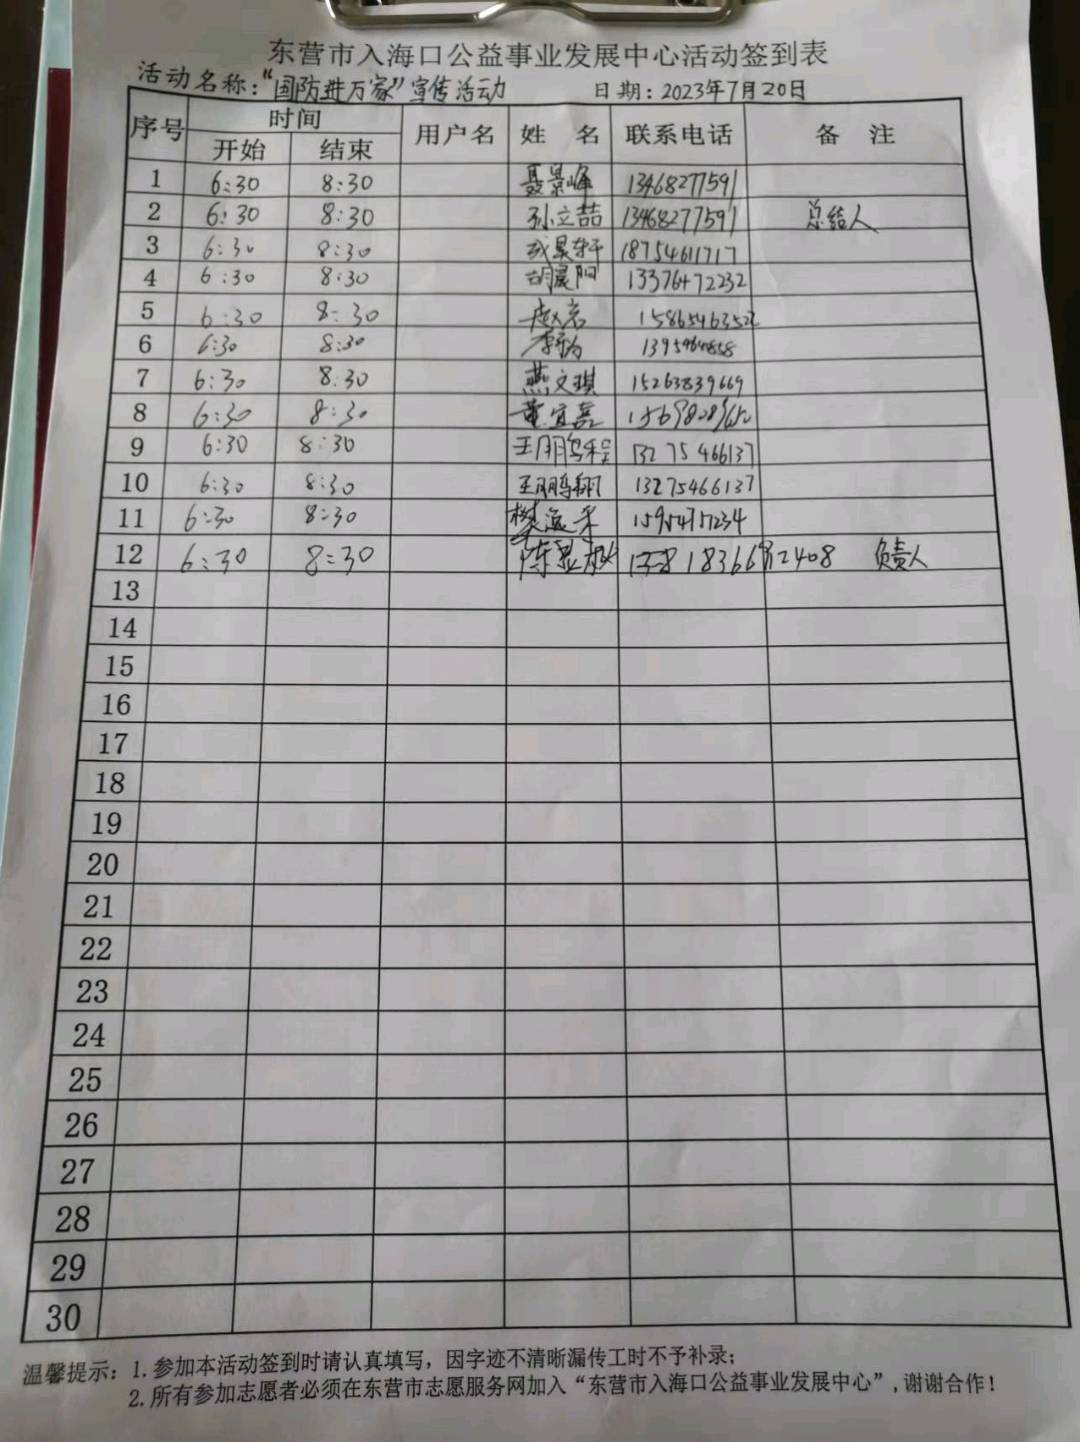 东营市入海口公益事业发展中心活动签到表
活动名称："国防进万家"宣传活动 日期：2023年7月20日
序号 时间 用户名 姓 名 联系电话 备 注
开始 结束
1 6:30 8:30 聂景峰 13468277591
2 6:30 8:30 孙立喆 13468277591 总结人
3 6:30 8:30 18754611717
4 6:30 8:30 胡晨阳 13376472232
5 6:30 8:30 赵岩
6 6:30 8:30
7 6:30 8:30 燕文琪 15263839669
8 6:30 8:30 董宜嘉
9 6:30 8:30 王鹏程 13275466137
10 6:30 8:30 王鹏翔 13275466137
11 6:30 8:30 15954757234
12 6:30 8:30 负责人
13
14
15
16
17
18
19
20
21
22
23
24
25
26
27
28
29
30
温馨提示：1.参加本活动签到时请认真填写，因字迹不清晰漏传工时不予补录；
2.所有参加志愿者必须在东营市志愿服务网加入"东营市入海口公益事业发展中心",谢谢合作！